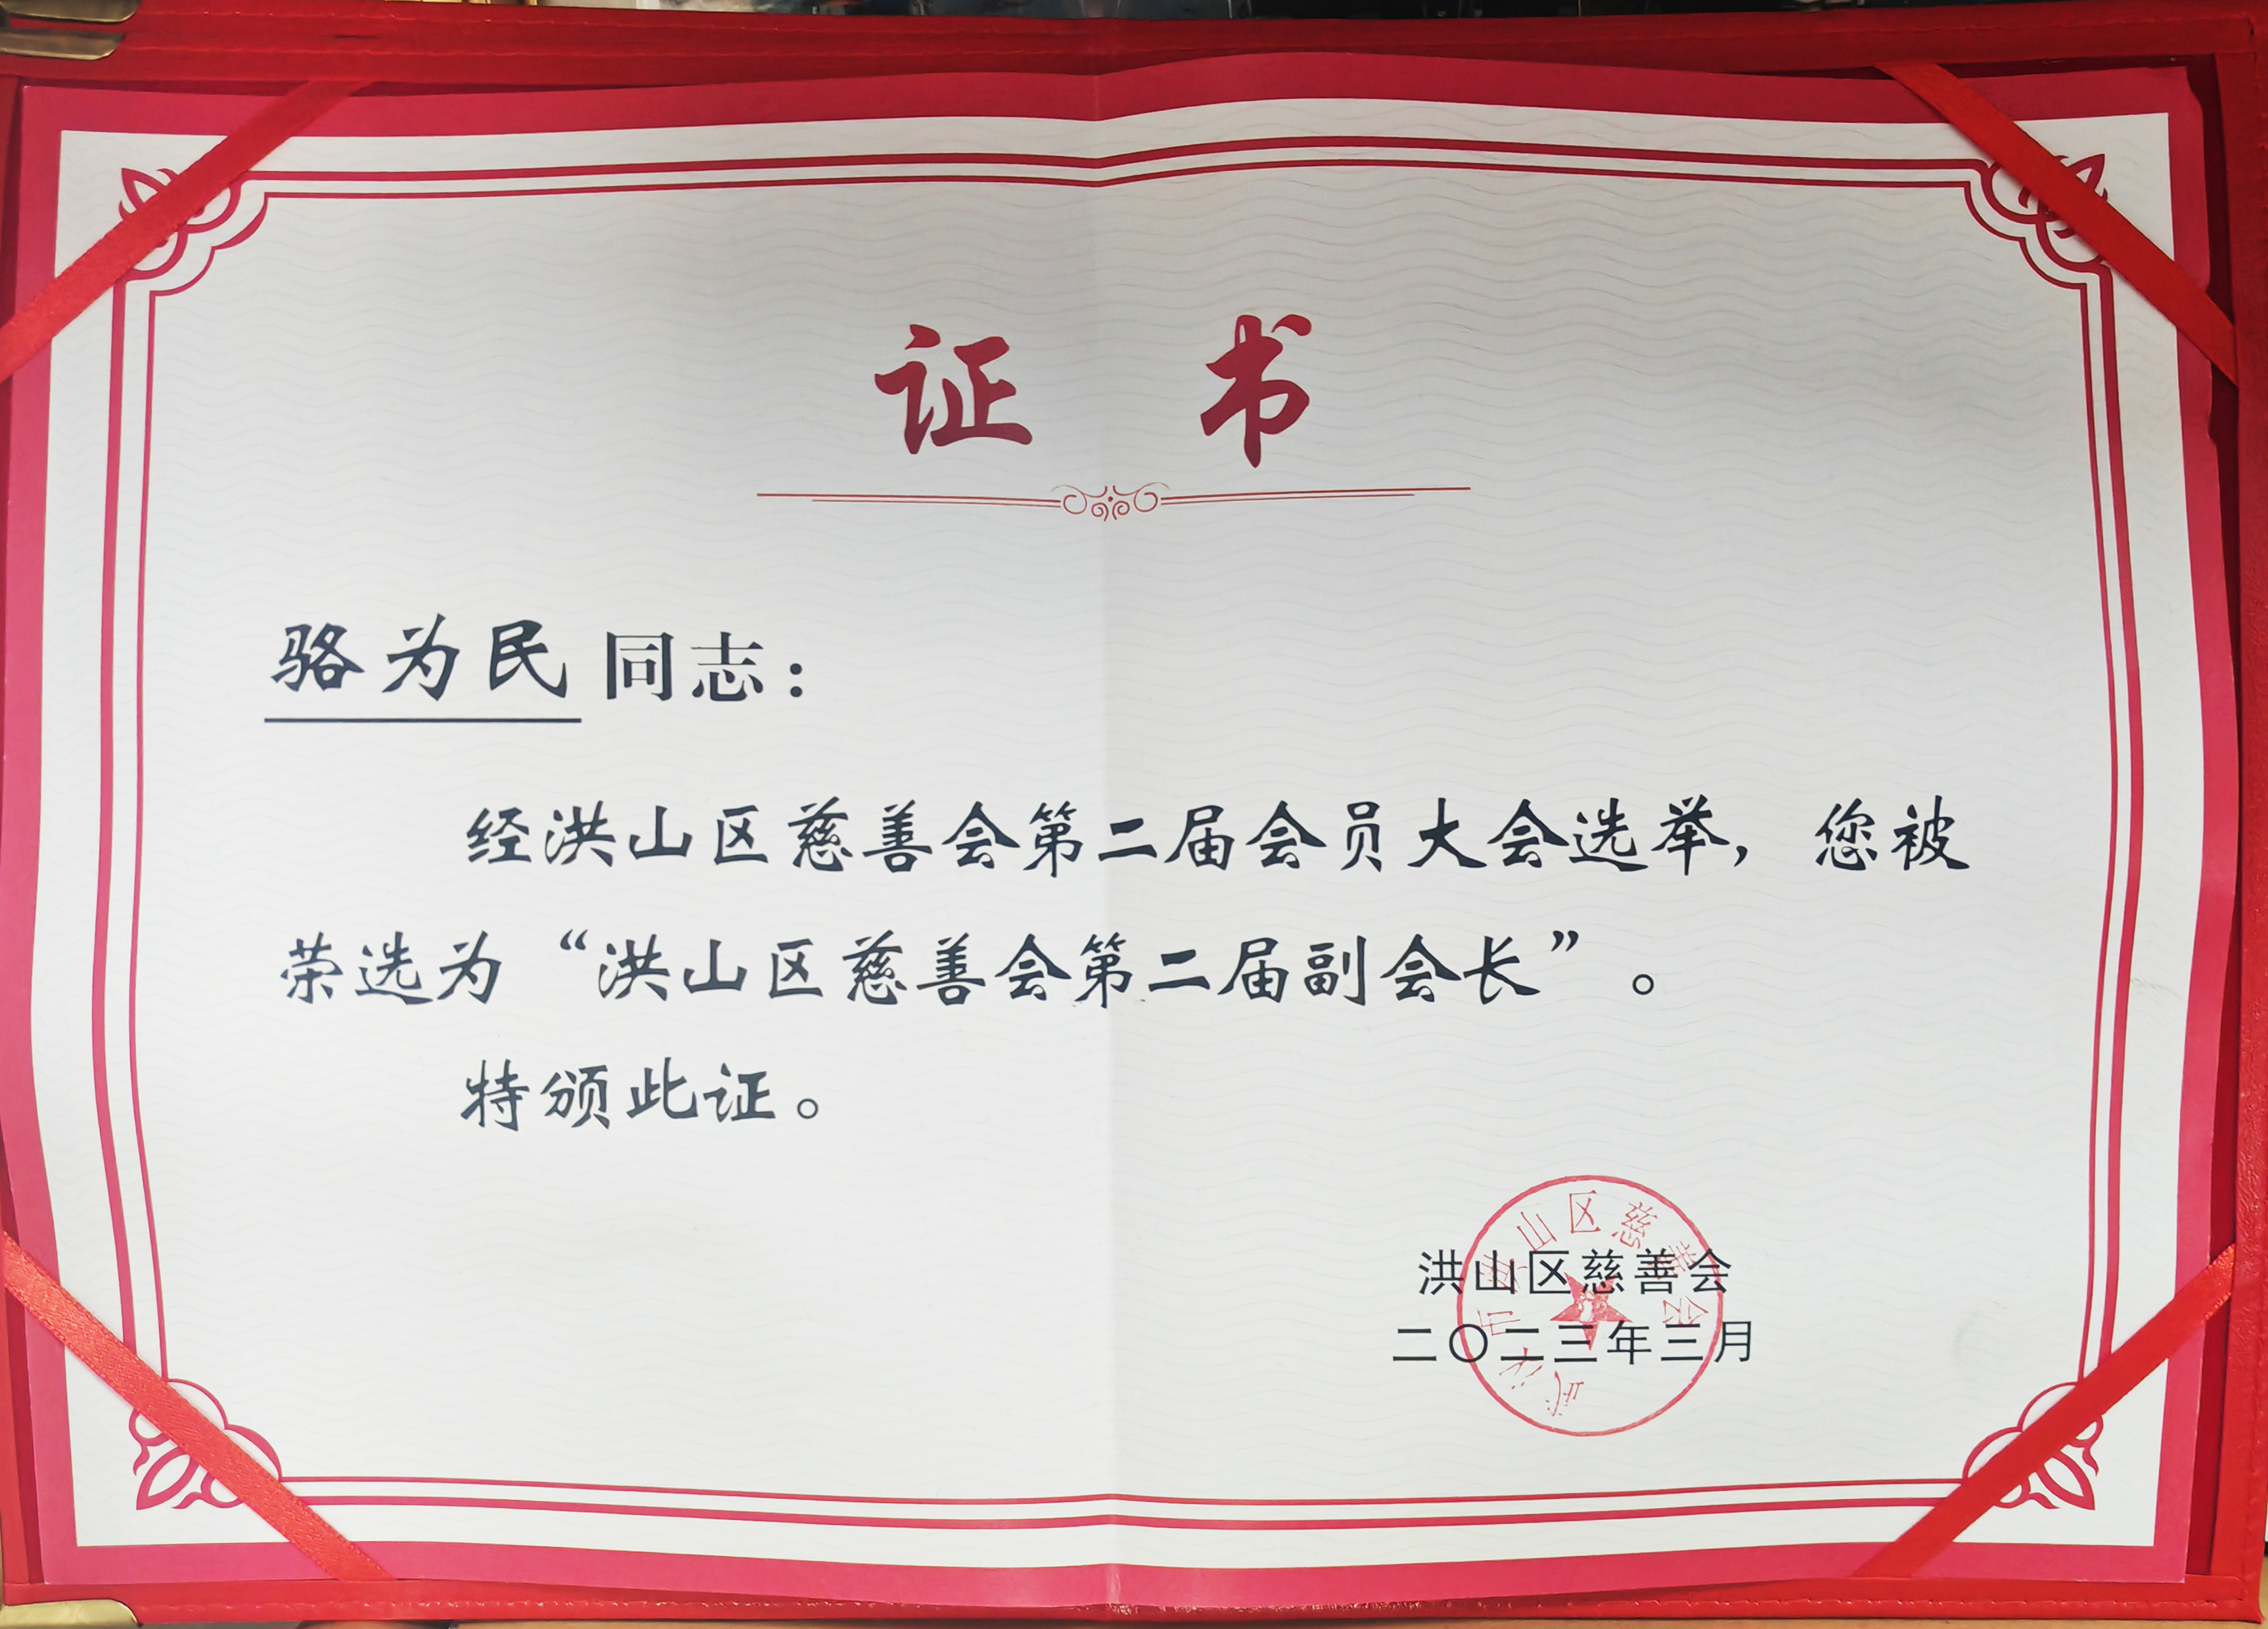 证 书
骆为民 同志：
经洪山区慈善会第二届会员大会选举，您被
荣选为“洪山区慈善会第二届副会长”。
特颁此证。
洪山区慈善会
二〇二三年三月
武汉市洪山区慈善会